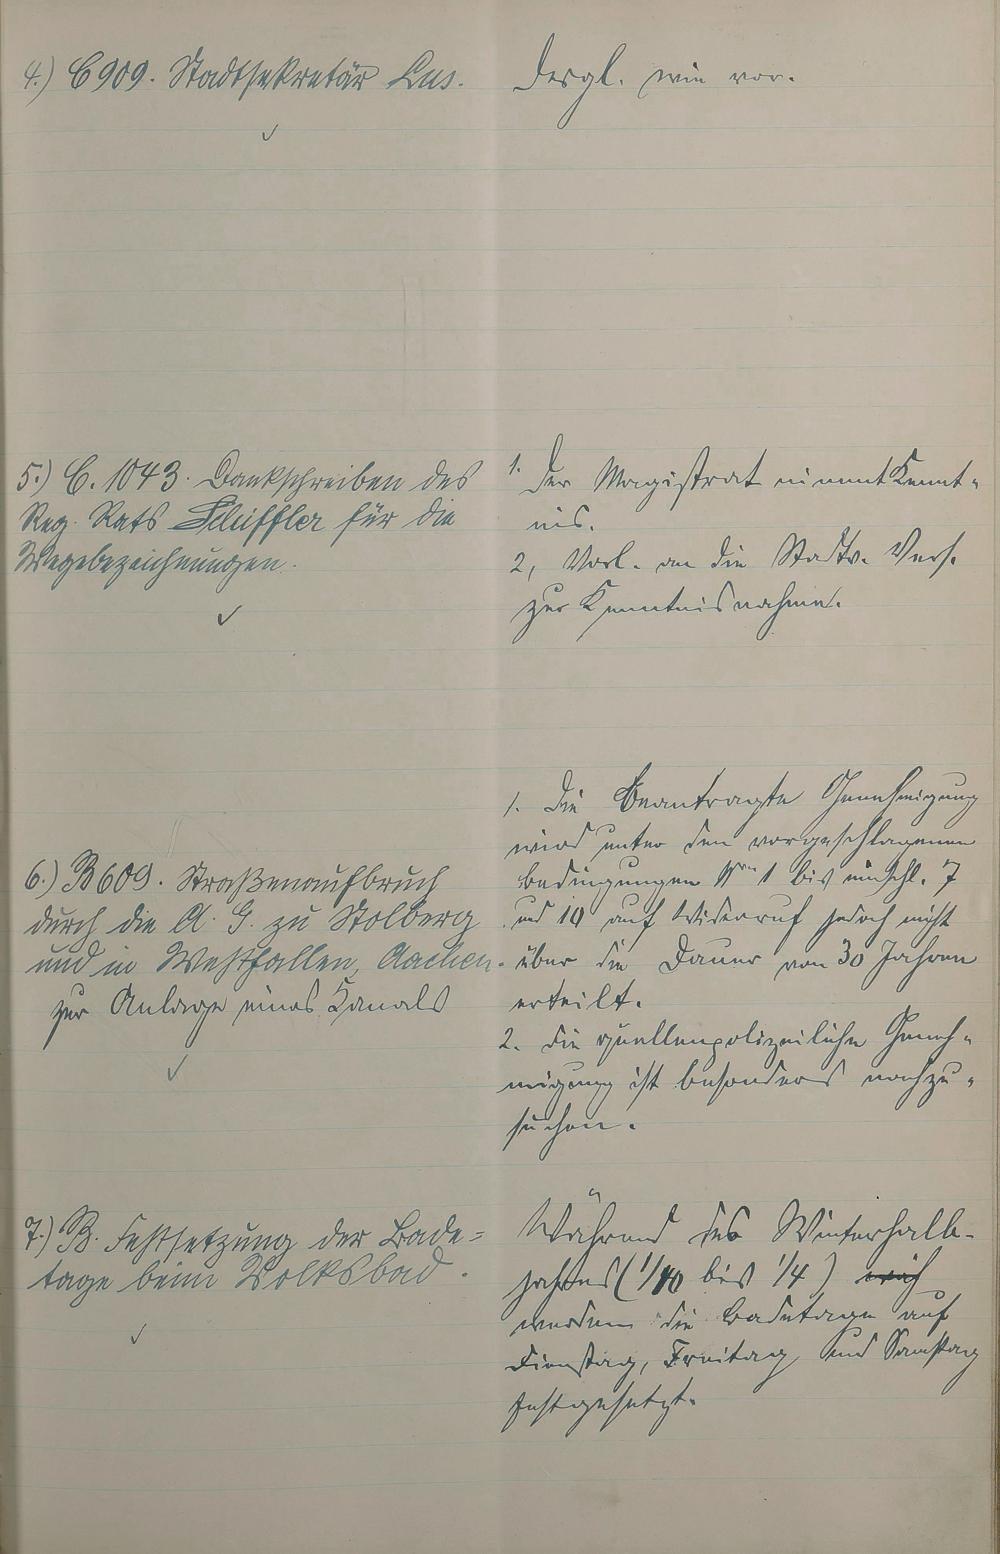 4.) C 909. Stadtsekretär Lus.
Desgl. wie vor.
5.) C. 1043. Dankschreiben des
Reg. Rats Schiffler für die
Wegebezeichnungen.
1. Der Magistrat nimmt Kennt-
nis.
2, Vorl. an die Stadtv. Vers.
zur Kenntnisnahme.
6.) B 609. Straßenaufbruch
durch die A. G. zu Stolberg
und in Westfallen, Aachen.
zur Anlage eines Kanals
1. Die beantragte Genehmigung
wird unter den vorgeschlagenen
Bedingungen 1 bis einschl. 7
und 10 auf Widerruf jedoch nicht
über die Dauer von 30 Jahren
erteilt.
2. Die quellenpolizeiliche Geneh-
migung ist besonders nachzu-
suchen.
7.) B. Festsetzung der Bade-
tage beim Volksbad.
Während des Winterhalb-
jahres (1/10 bis 1/4)
werden die Badetage auf
Dienstag, Freitag und Samstag
festgesetzt.